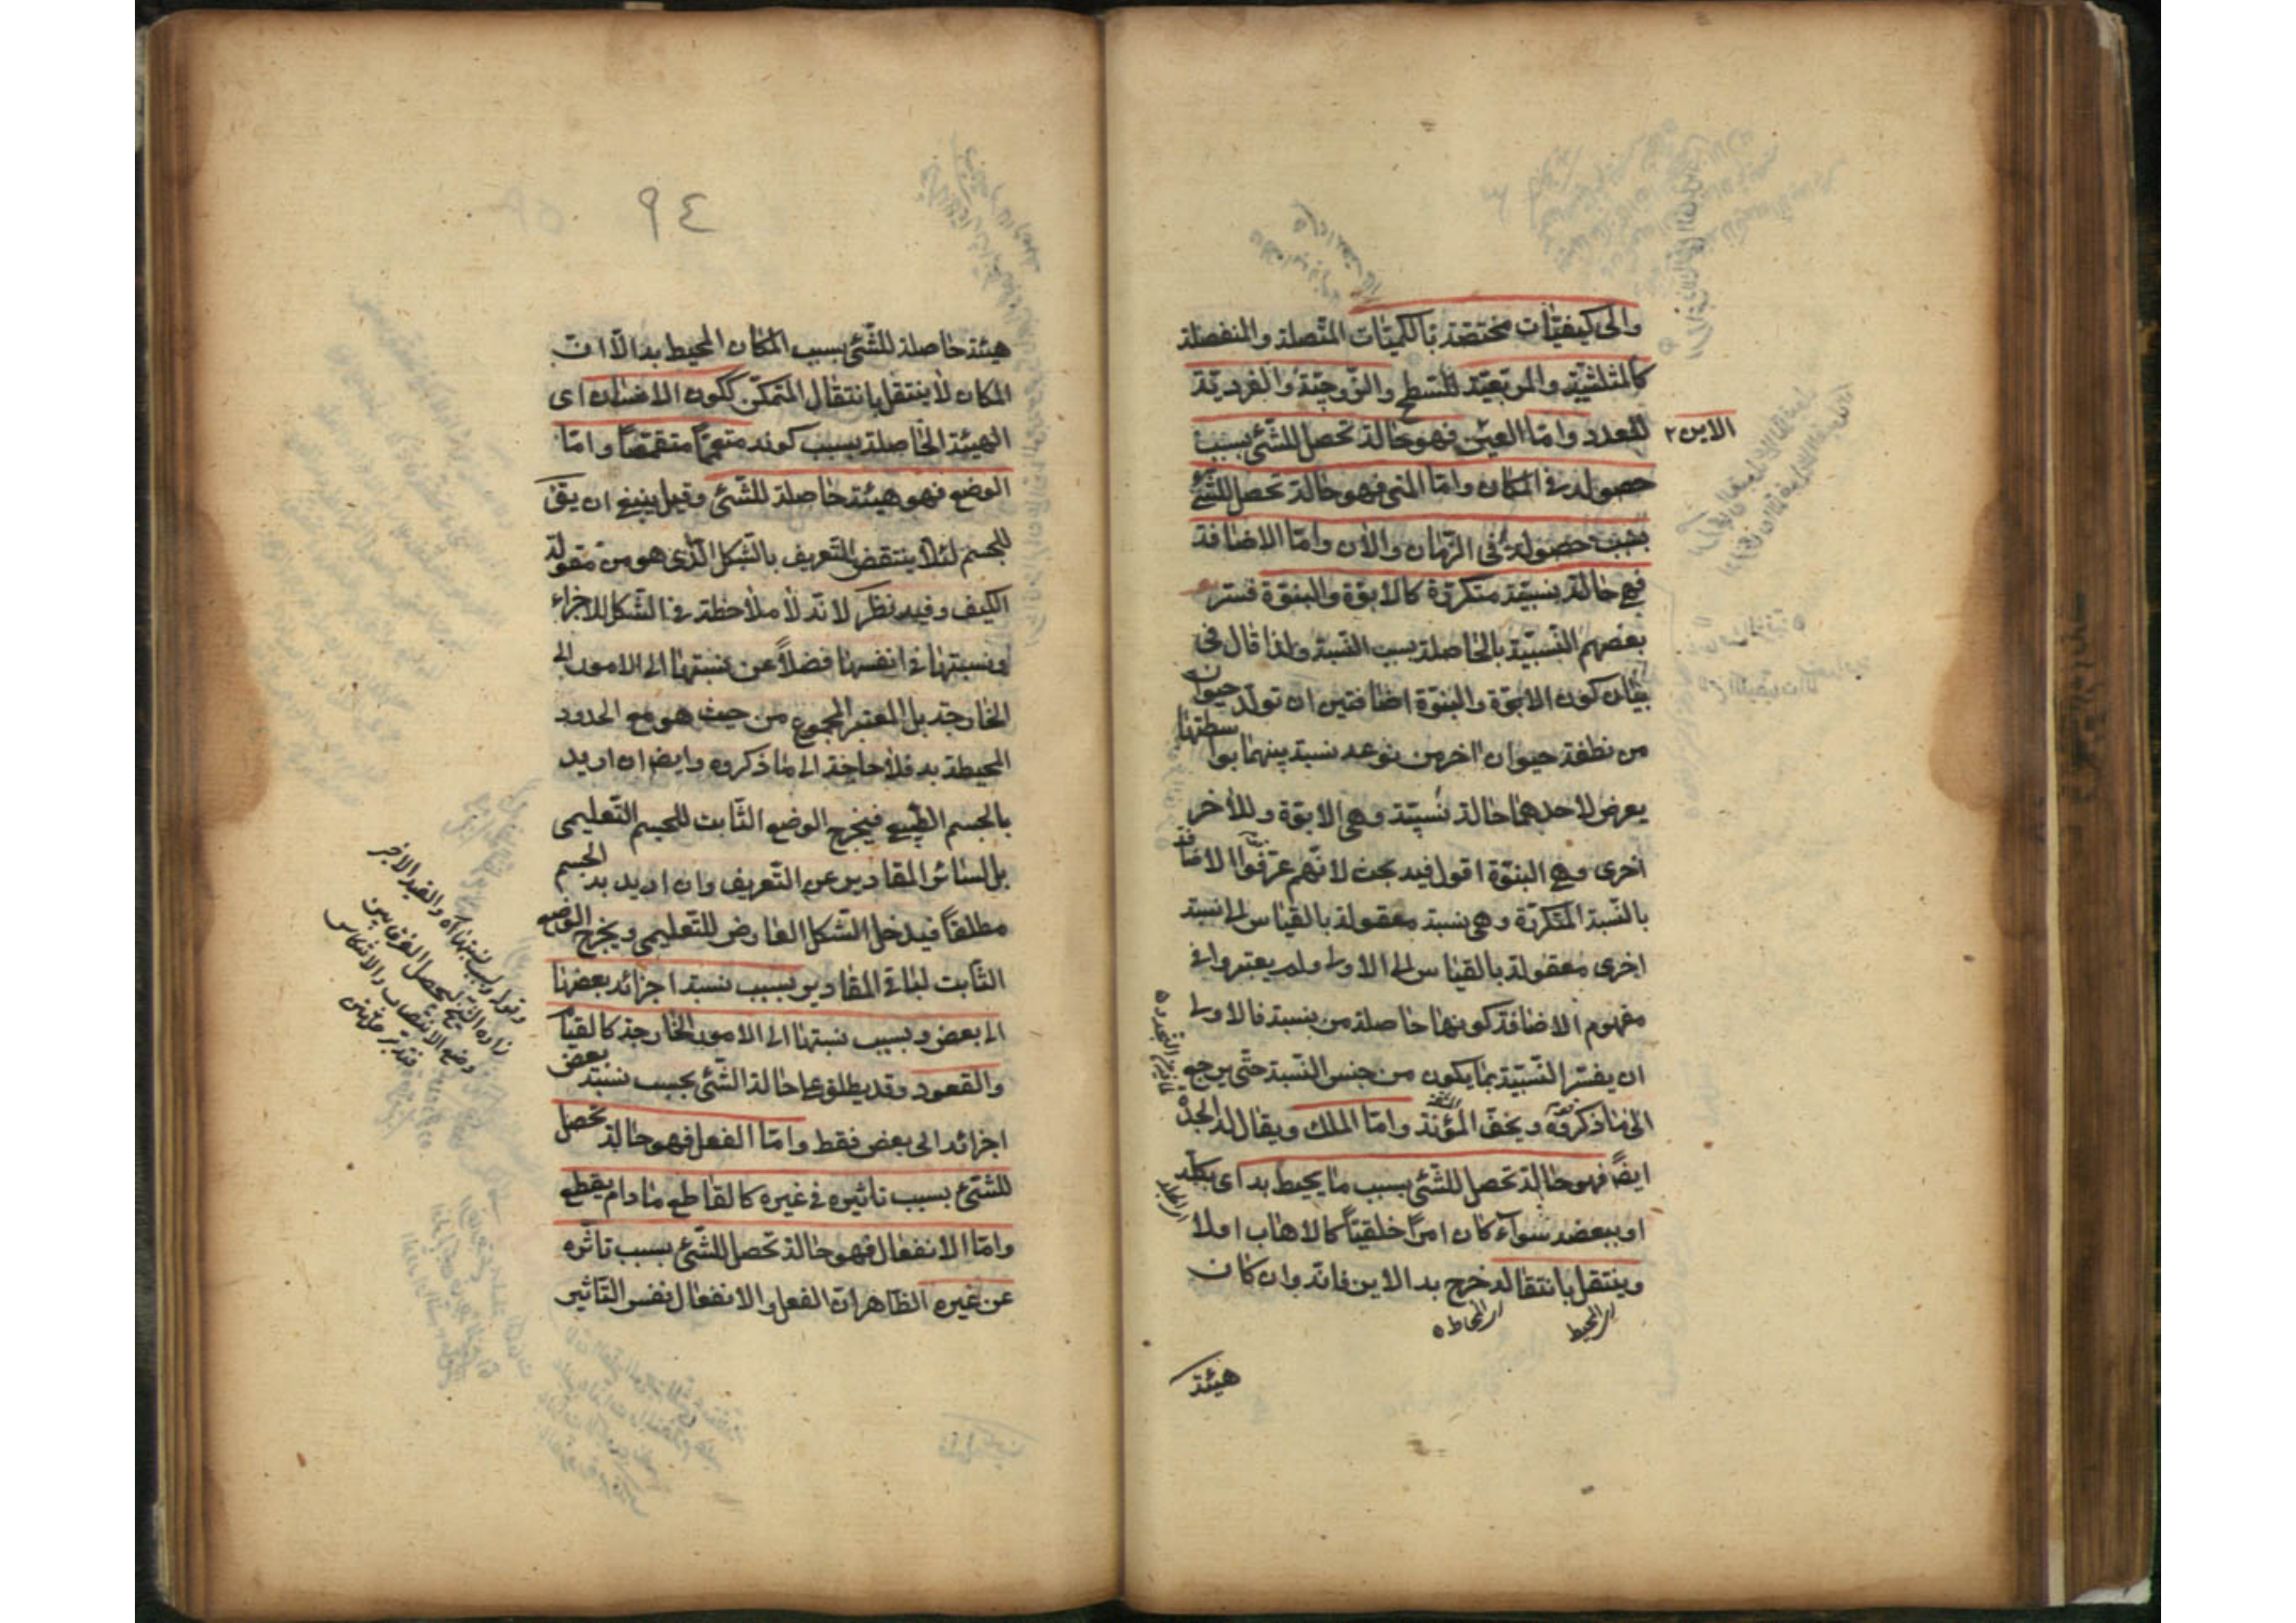 والى كيفيّات مختصّة بالكميّات المتّصلة والمنفصلة
كالمثلثيّة والمربّعيّة للسّطح والزّوجيّة والفرديّة
للعدد وامّا العين فهو حالة تحصل للشّئ بسبب
الاين ٢
حصوله في المكان وامّا المتى فهو حالة تحصل للشّئ
بسبب حصوله فى الزّمان والآن وامّا الاضافة
فهى حالة نسبيّة متكرّرة كالابوّة والبنوّة فسّر
بعضهم النّسبيّة بالحاصلة بسبب النّسبة ولذا قال فى
بيان كون الابوّة والبنوّة اضافتين ان تولّد حيوان
من نطفة حيوان اخر من نوعه نسبة بينهما بواسطتها
يعرض لاحدهما حالة نسبيّة وهى الابوّة وللأخر
اخرى وهى البنوّة اقول فيه بحث لانّهم عرّفوا الاضافة
بالنّسبة المتكرّرة وهى نسبة معقولة بالقياس الى نسبة
اخرى معقولة بالقياس الى الاولى ولم يعتبروا فى
مفهوم الاضافة كونها حاصلة من نسبة فالاولى
ان يفسّر النّسبيّة بما يكون من جنس النّسبة حتّى يرجع
الى ما ذكروه ويخفّ المؤنة وامّا الملك ويقال له الجدة
ايضًا فهو حالة تحصل للشّئ بسبب ما يحيط به اى بكلّه
او ببعضه سواء كان امرًا خلقيًّا كالاهاب اولا
وينتقل بانتقاله خرج به الاين فانّه وان كان
اى المحيط
اى المحاط ه
هيئة
٩٤
هيئة حاصلة للشّئ بسبب المكان المحيط به الّا انّ
المكان لا ينتقل بانتقال المتمكّن ككون الانسان اى
الهيئة الحاصلة بسبب كونه متعمّمًا متقمّصًا وامّا
الوضع فهو هيئة حاصلة للشّئ وقيل ينبغى ان يقى
للجسم لئلّا ينتقض التّعريف بالشّكل الّذى هو من مقولة
الكيف وفيه نظر لانّه لا ملاحظة فى الشّكل للاجزاء
ونسبتها فى انفسها فضلاً عن نسبتها الى الامور
الخارجة بل المعتبر المجموع من حيث هو مع الحدود
المحيطة به فلا حاجة الى ما ذكروه وايضا ان اريد
بالجسم الطّبيعى فيخرج الوضع الثّابت للجسم التّعليمى
بل لسائر المقادير عن التّعريف وان اريد به الجسم
مطلقًا فيدخل الشّكل العارض للتّعليمى ويخرج الوضع
الثّابت لباقى المقادير بسبب نسبة اجزائه بعضها
الى بعض وبسبب نسبتها الى الامور الخارجة كالقيام
والقعود وقد يطلق على حالة الشّئ بحسب نسبة بعض
اجزائه الى بعض فقط وامّا الفعل فهو حالة تحصل
للشّئ بسبب تاثيره فى غيره كالقاطع ما دام يقطع
وامّا الانفعال فهو حالة تحصل للشّئ بسبب تاثّره
عن غيره الظّاهر انّ الفعل والانفعال نفس التّاثير
وقوله وبسبب نسبتها اه والقيد الاخير
زاده الشيخ ليحصل الفرق بين
وضع الانتصاب والانتكاس